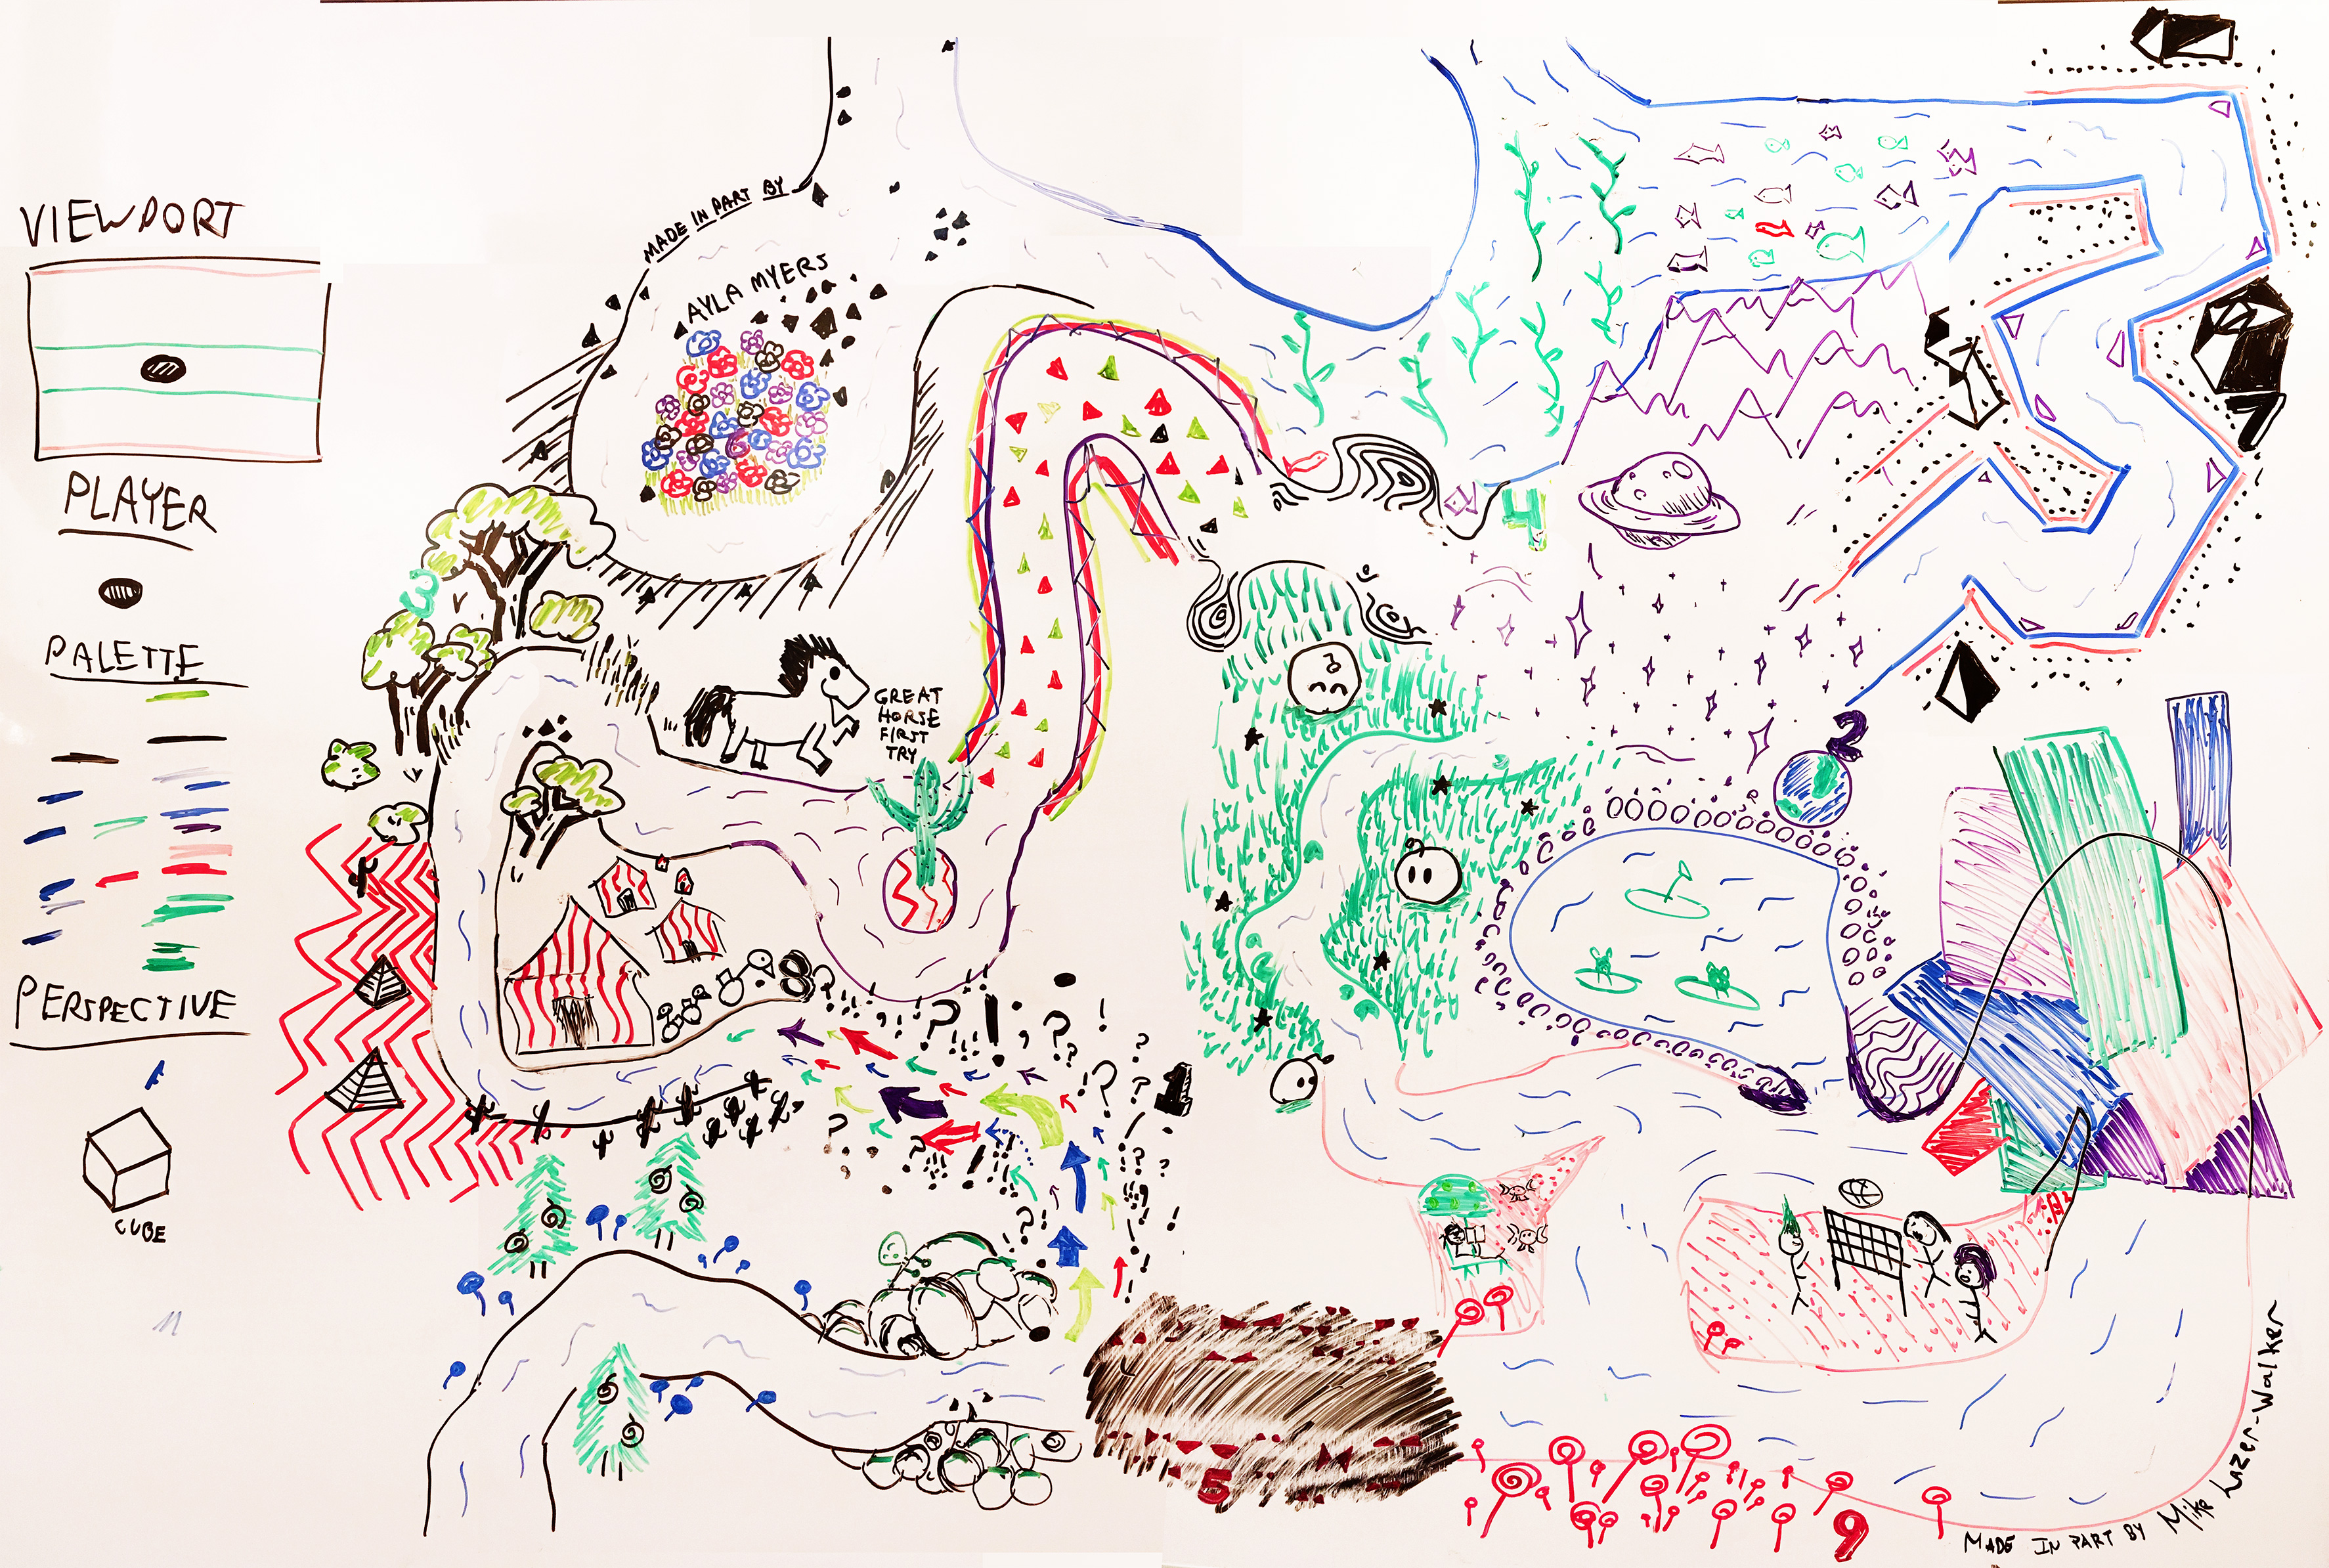 VIEWPORT
PLAYER
PALETTE
PERSPECTIVE
CUBE
MADE IN PART BY
AYLA MYERS
3
GREAT
HORSE
FIRST
TRY
8
1
4
2
5
9
MADE IN PART BY Mike Lazer-Walker